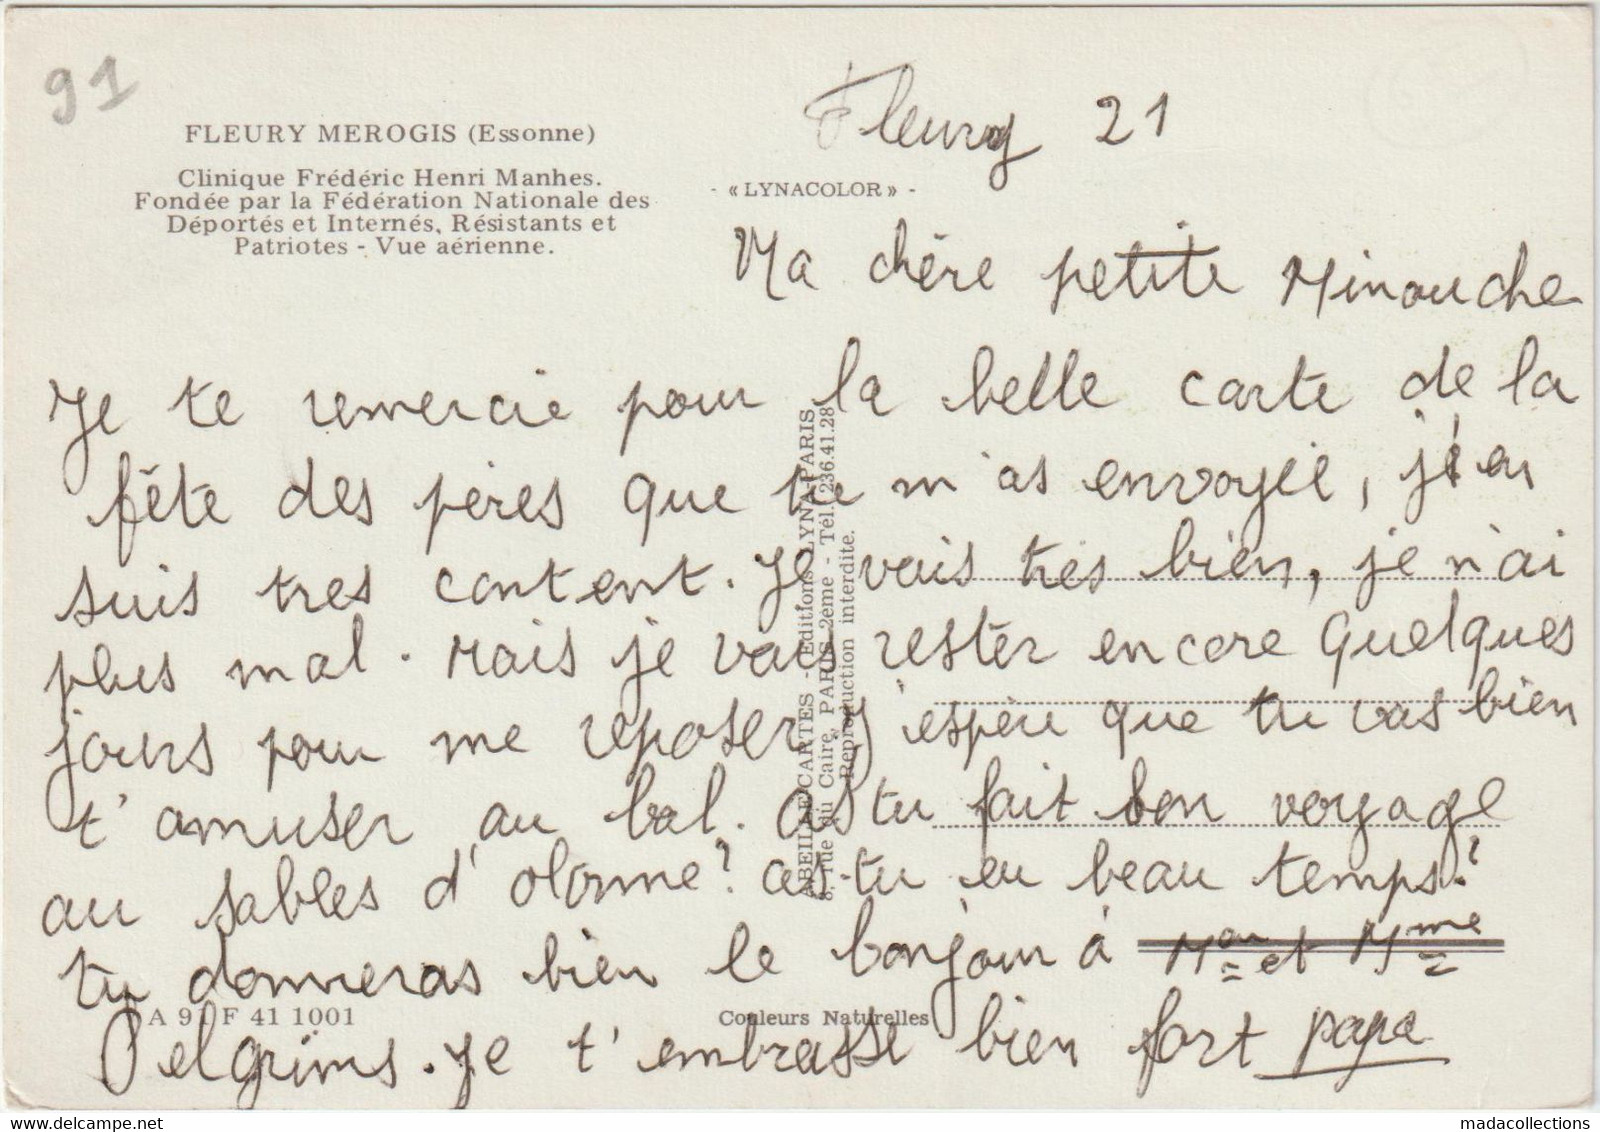 91
FLEURY MEROGIS (Essonne)
Clinique Frédéric Henri Manhes.
Fondée par la Fédération Nationale des
Déportés et Internés, Résistants et
Patriotes - Vue aérienne.
- «LYNACOLOR» -
Fleury 21
Ma chère petite Minouche
Je te remercie pour la belle carte de la
fête des pères que tu m'as envoyée, j'en
suis tres content. Je vais très bien, je n'ai
plus mal. Mais je vais rester encore quelques
jours pour me reposer, j'espère que tu vas bien
t'amuser au bal. as tu fait bon voyage
au sables d'olonne? as-tu eu beau temps?
tu donneras bien le bonjour à Mr et Mme
Pelgrims. Je t'embrasse bien fort papa
ABEILLE CARTES - Editions LYNA-PARIS
8, rue du Caire, PARIS 2ème - Tél. 236.41.28
Reproduction interdite.
A 91 F 41 1001
Couleurs Naturelles
www.delcampe.net
madacollections